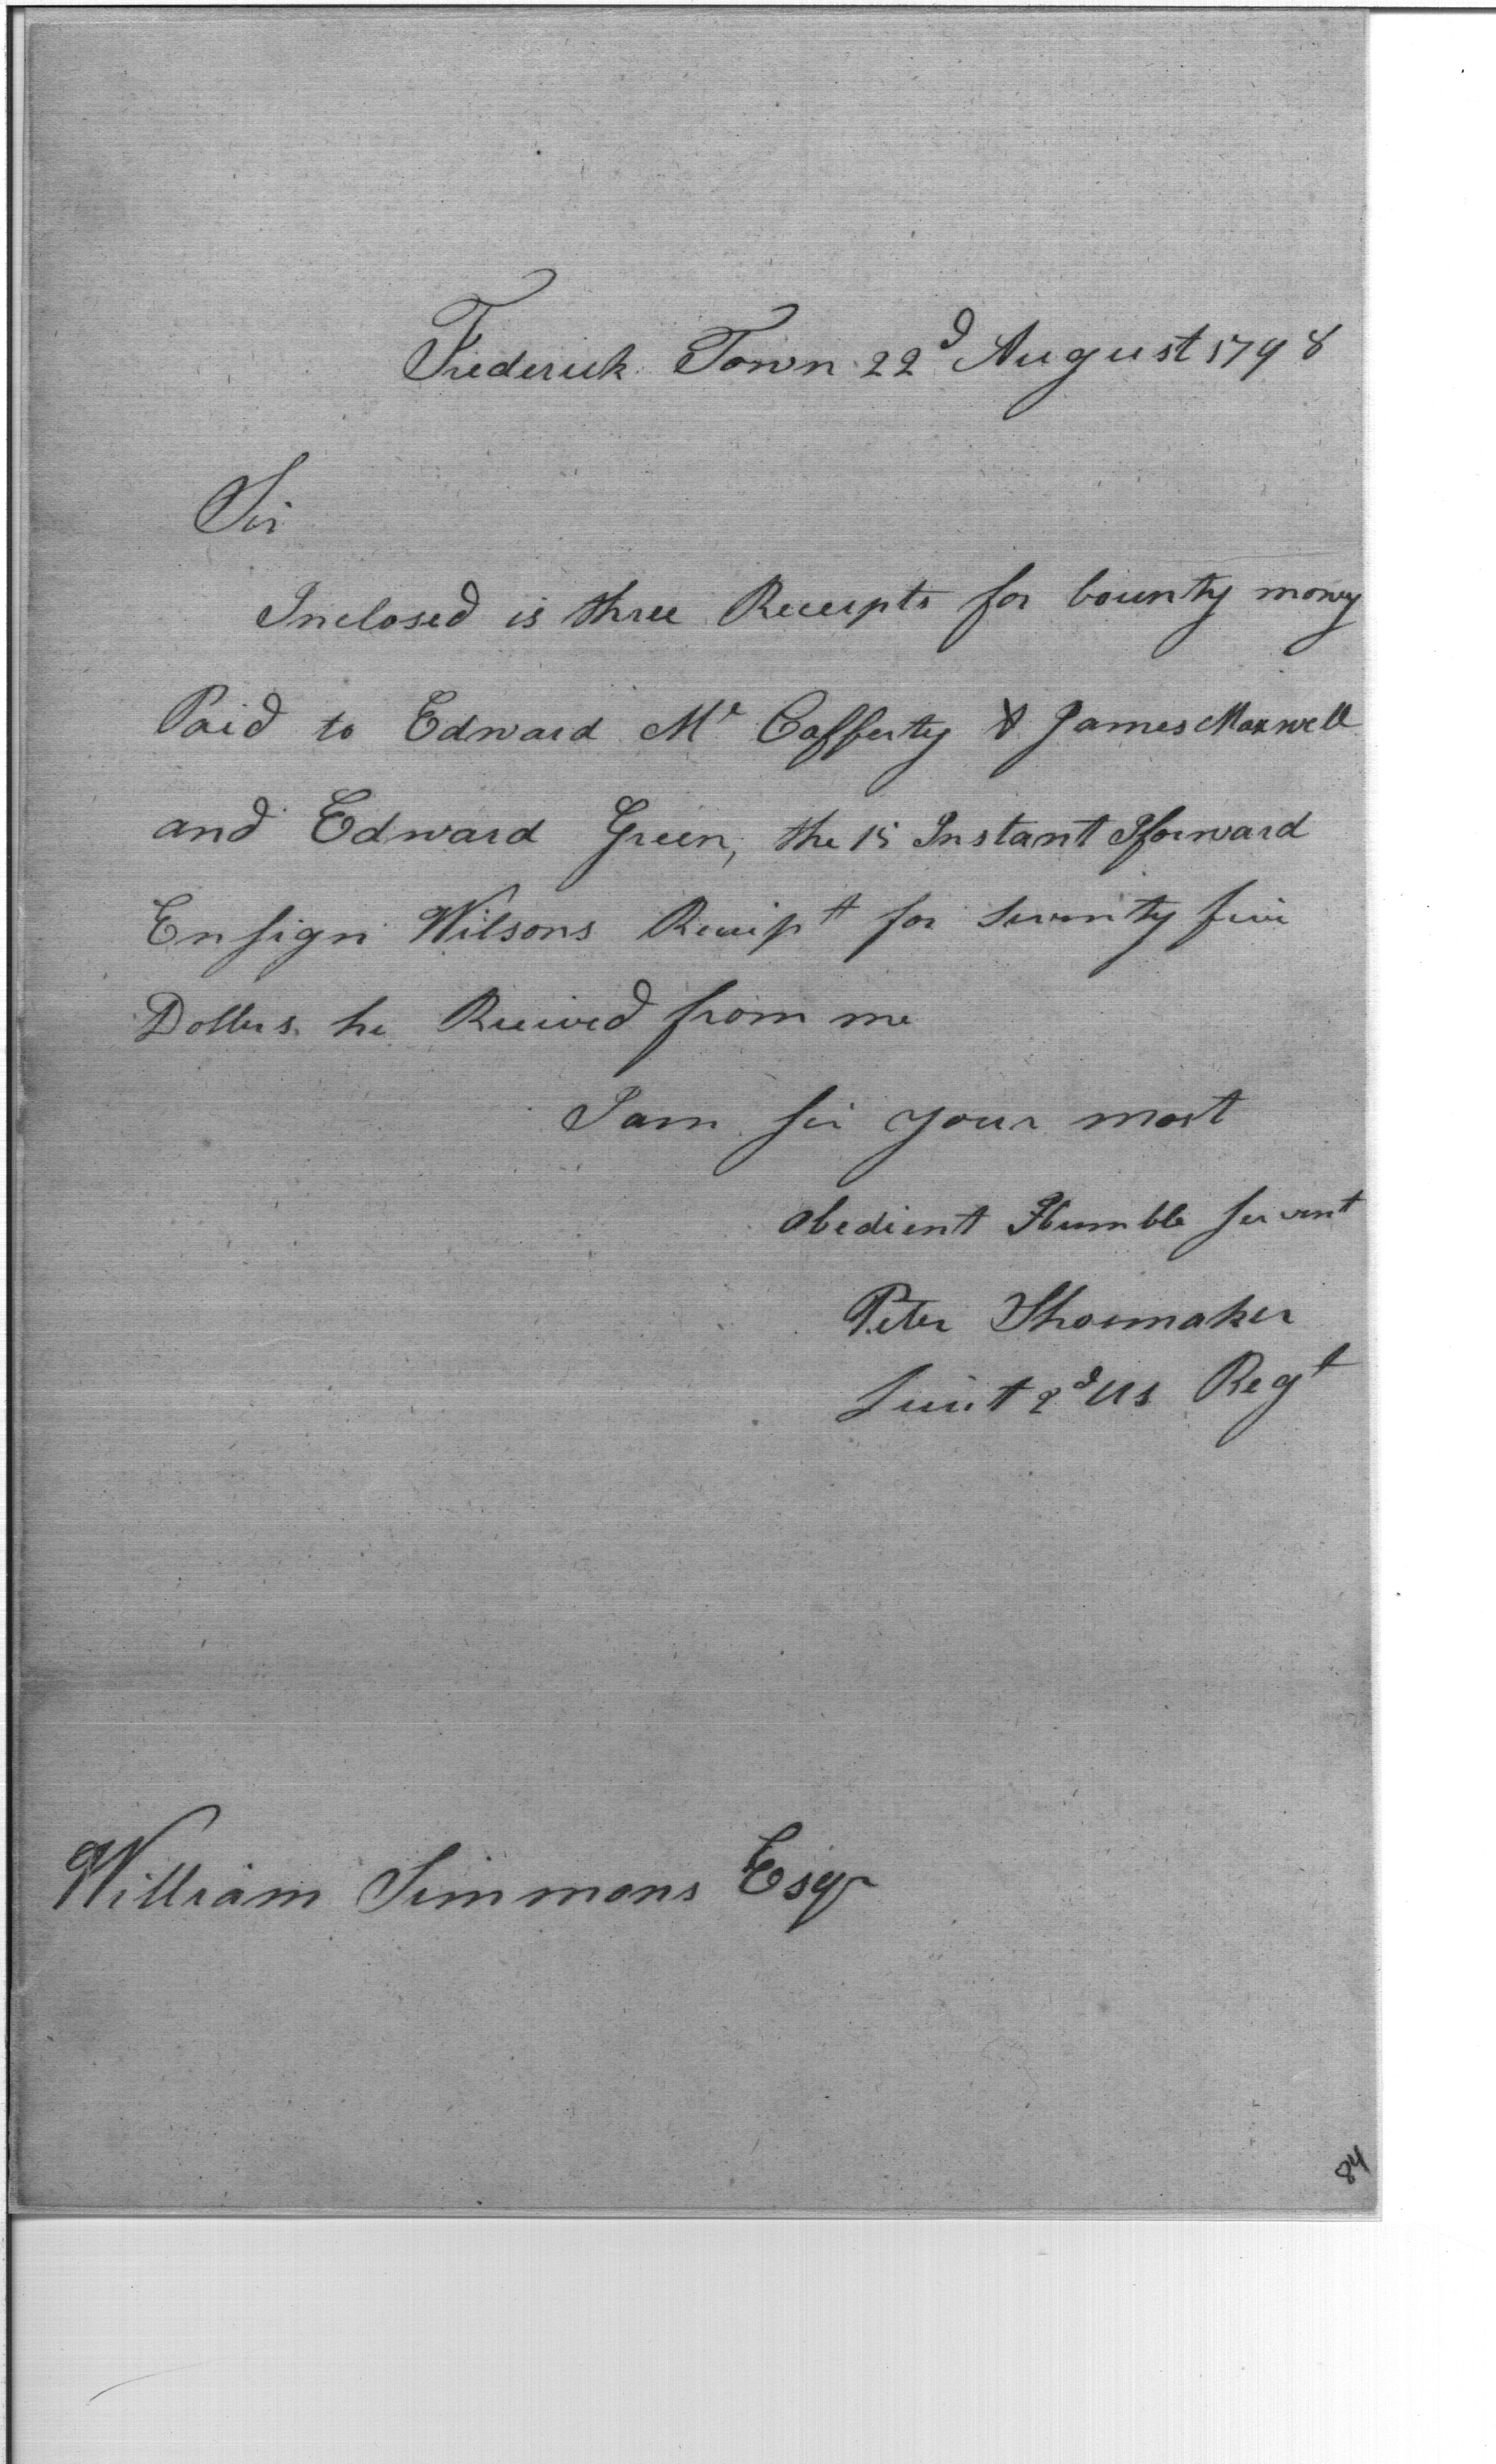 Frederick Town 22d August 1798
Sir
Inclosed is three Receipts for bounty money
Paid to Edward Mc Cafferty & James Maxwell
and Edward Green, the 15 Instant I forward
Ensign Wilsons Receipt for seventy five
Dollers he Received from me
I am sir your most
obedient Humble servent
Peter Shoemaker
Lieut 2d US Regt
William Simmons Esqr
84